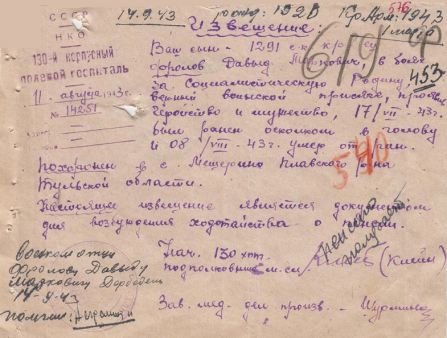 СССР
НКО
130-й корпусный
полевой госпиталь
11 августа 1943 г.
№ 14251
14.9.43
1920
1943
Извещение:
Ваш сын - 1291 с.к. кр-ец
Фролов Давыд Маркович, в боях
за Социалистическую Родину
верный воинской присяге, проявив
геройство и мужество, 17/VII - 43 г.
был ранен осколком в голову
и 08/VIII - 43 г. умер от ран.
Похоронен в с. Мещерино Плавского р-на
Тульской области.
Настоящее извещение является документом
для возбуждения ходатайства о пенсии.
619
453
590
Нач. 130 хппг
подполковник м.сл. (Клейн)
Зав. мед. дел. произв. -
Военком отцу
Фролову Давыду
Марковичу
14-9-43
получил